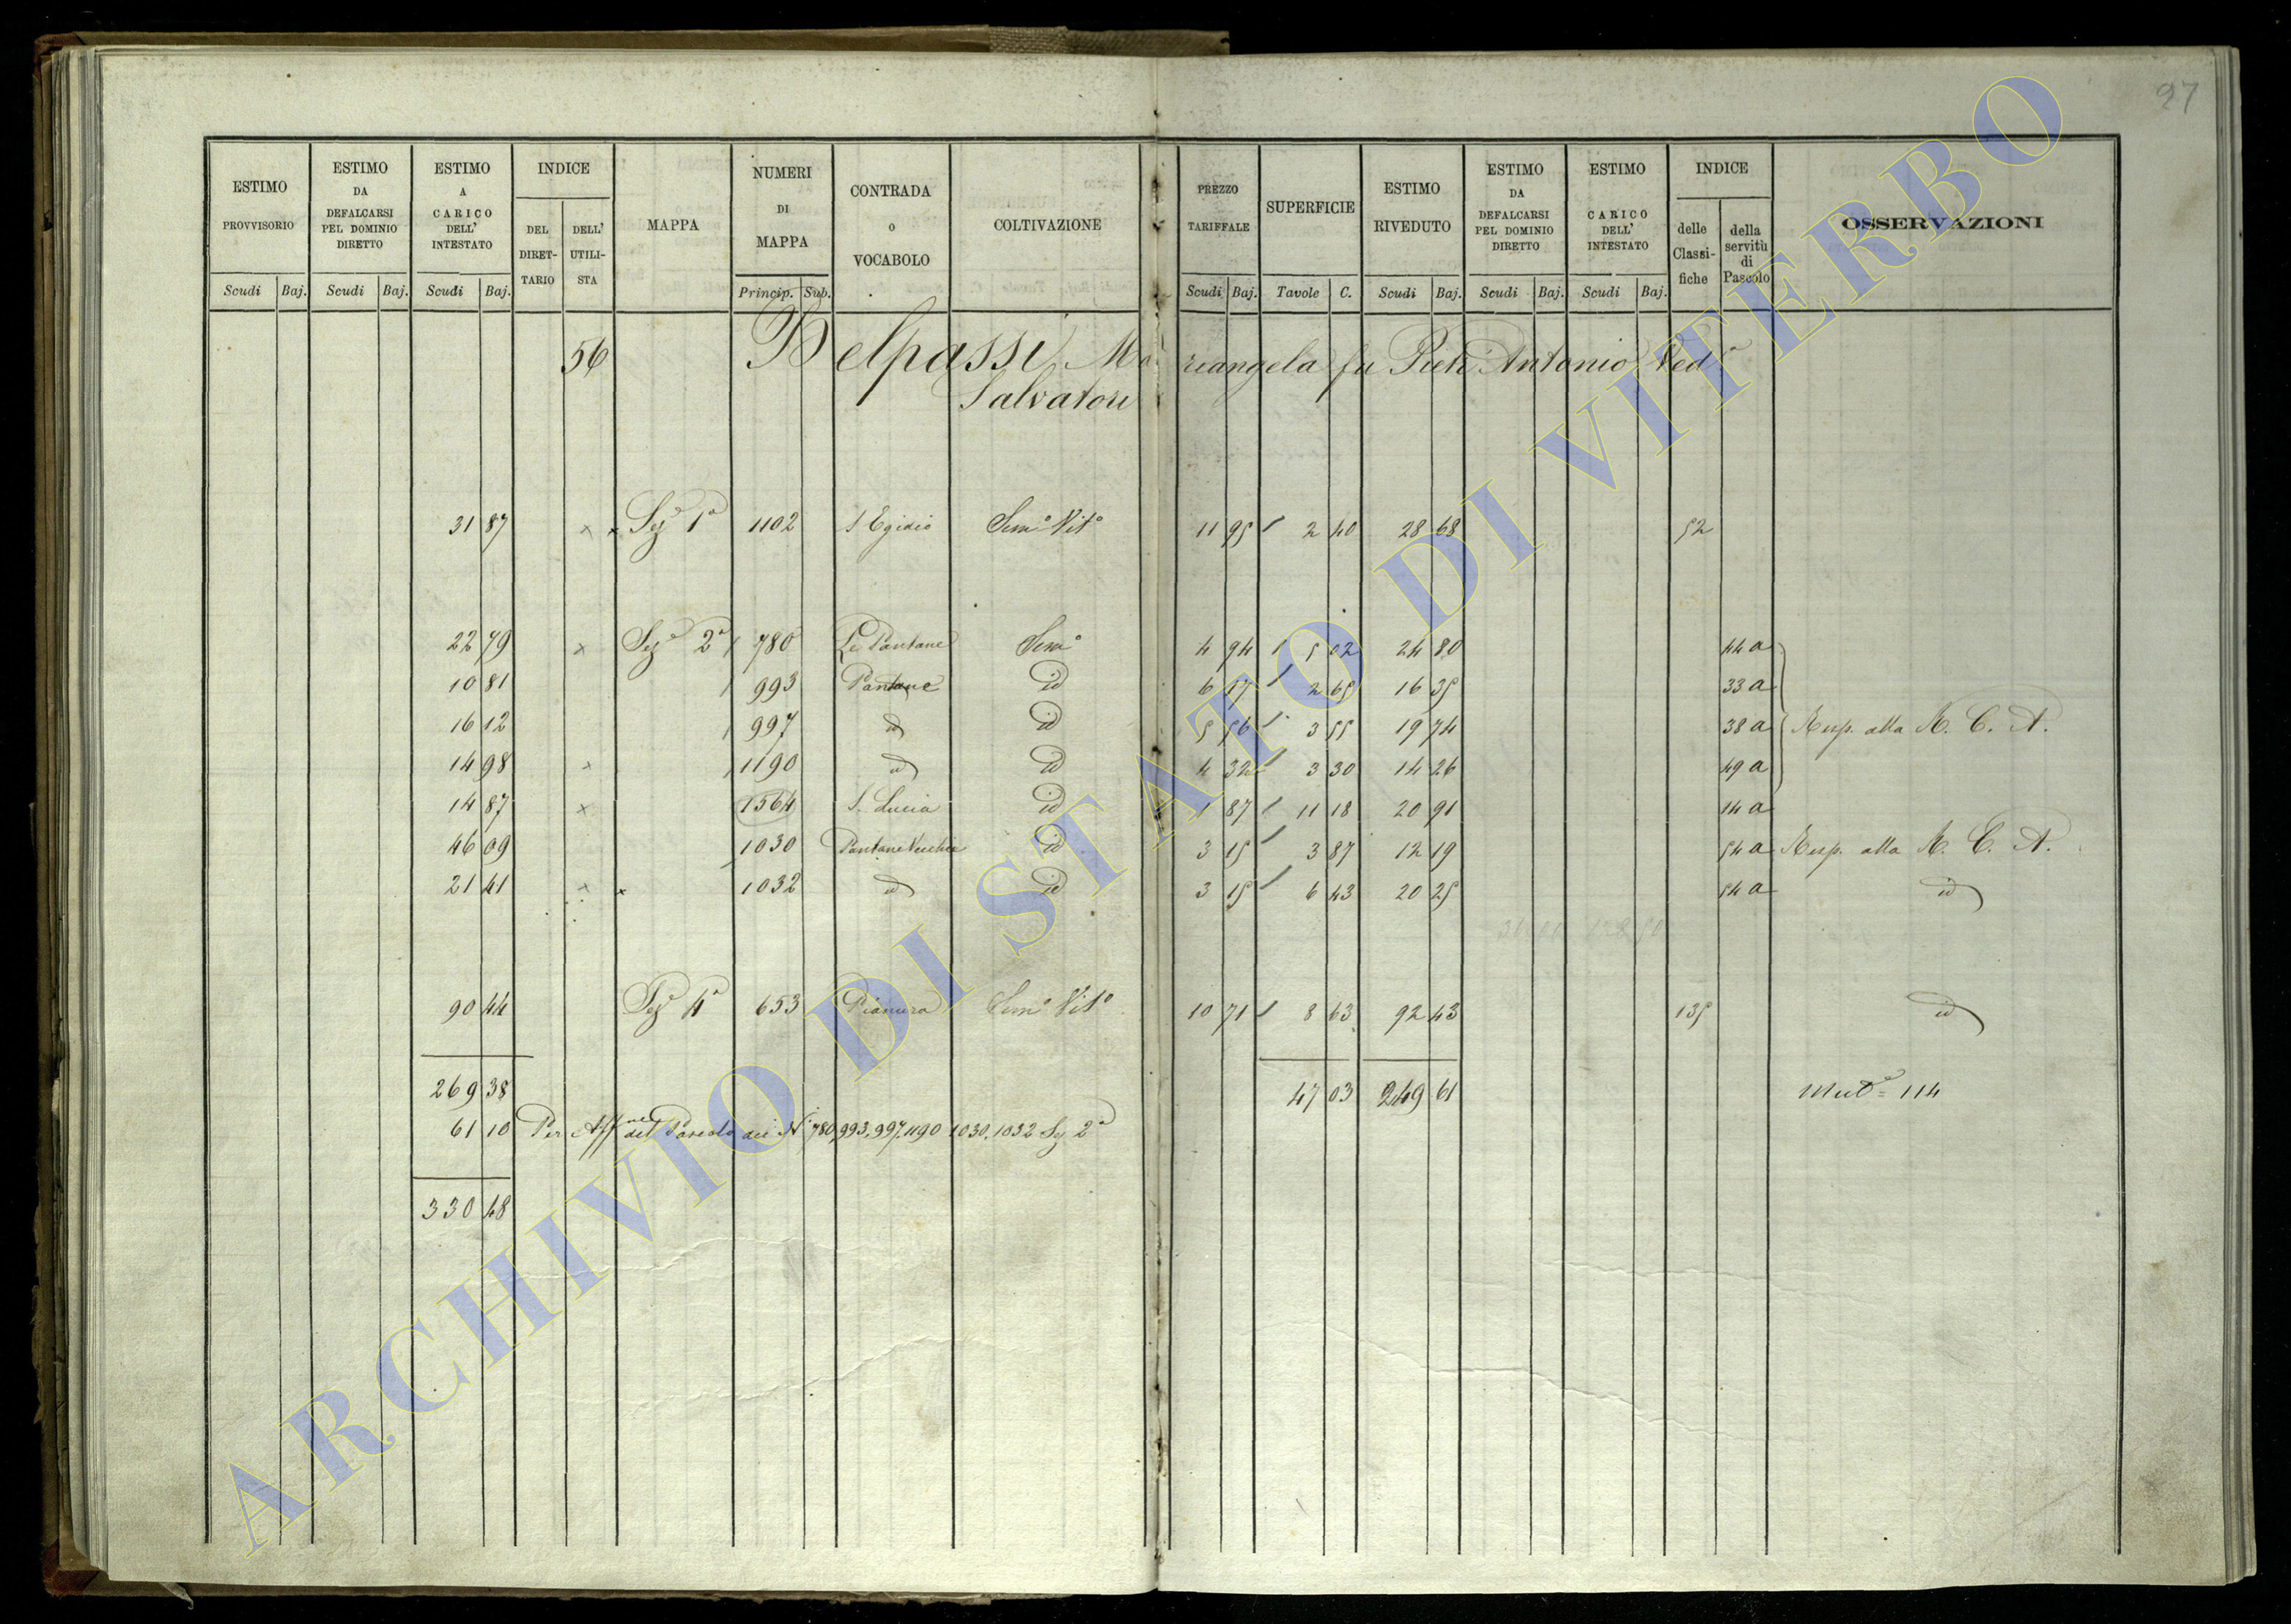 97
ESTIMO PROVVISORIO Scudi Baj.
ESTIMO DA DEFALCARSI PEL DOMINIO DIRETTO Scudi Baj.
ESTIMO A CARICO DELL' INTESTATO Scudi Baj.
INDICE DEL DIRET-TARIO DELL' UTILI-STA
MAPPA
NUMERI DI MAPPA Princip. Sub.
CONTRADA O VOCABOLO
COLTIVAZIONE
PREZZO TARIFFALE Scudi Baj.
SUPERFICIE Tavole C.
ESTIMO RIVEDUTO Scudi Baj.
ESTIMO DA DEFALCARSI PEL DOMINIO DIRETTO Scudi Baj.
ESTIMO CARICO DELL' INTESTATO Scudi Baj.
INDICE delle Classi-fiche della servitù di Pascolo
OSSERVAZIONI
56 Belpassi Mariangela fu Pietr'Antonio Ved.ª
Salvatori
31 87 x x Sez.e 1ª 1102 S. Egidio Sem.o Vit.o 11 95 2 40 28 68 52
22 79 x Sez.e 2ª 780 Le Pantane Sem.o 4 94 5 02 24 80 44 a
10 81 993 Pantane id 6 17 2 65 16 35 33 a
16 12 997 id id 5 56 3 55 19 74 38 a Resp. alla R. C. A.
14 98 x 1190 id id 4 32 3 30 14 26 49 a
14 87 x 1564 S. Lucia id 1 87 11 18 20 91 14 a
46 09 1030 Pantane Vecchie id 3 15 3 87 12 19 54 a Resp. alla R. C. A.
21 41 x x 1032 id id 3 15 6 43 20 25 54 a id
90 44 Sez.e 4ª 653 Pianura Sem.o Vit.o 10 71 8 63 92 43 135 id
269 38 47 03 249 61 Mut.e = 114
61 10 Per Aff.ne del Pascolo dei N.i 780, 993, 997, 1190 1030, 1032 Sez. 2ª
330 48
ARCHIVIO DI STATO DI VITERBO